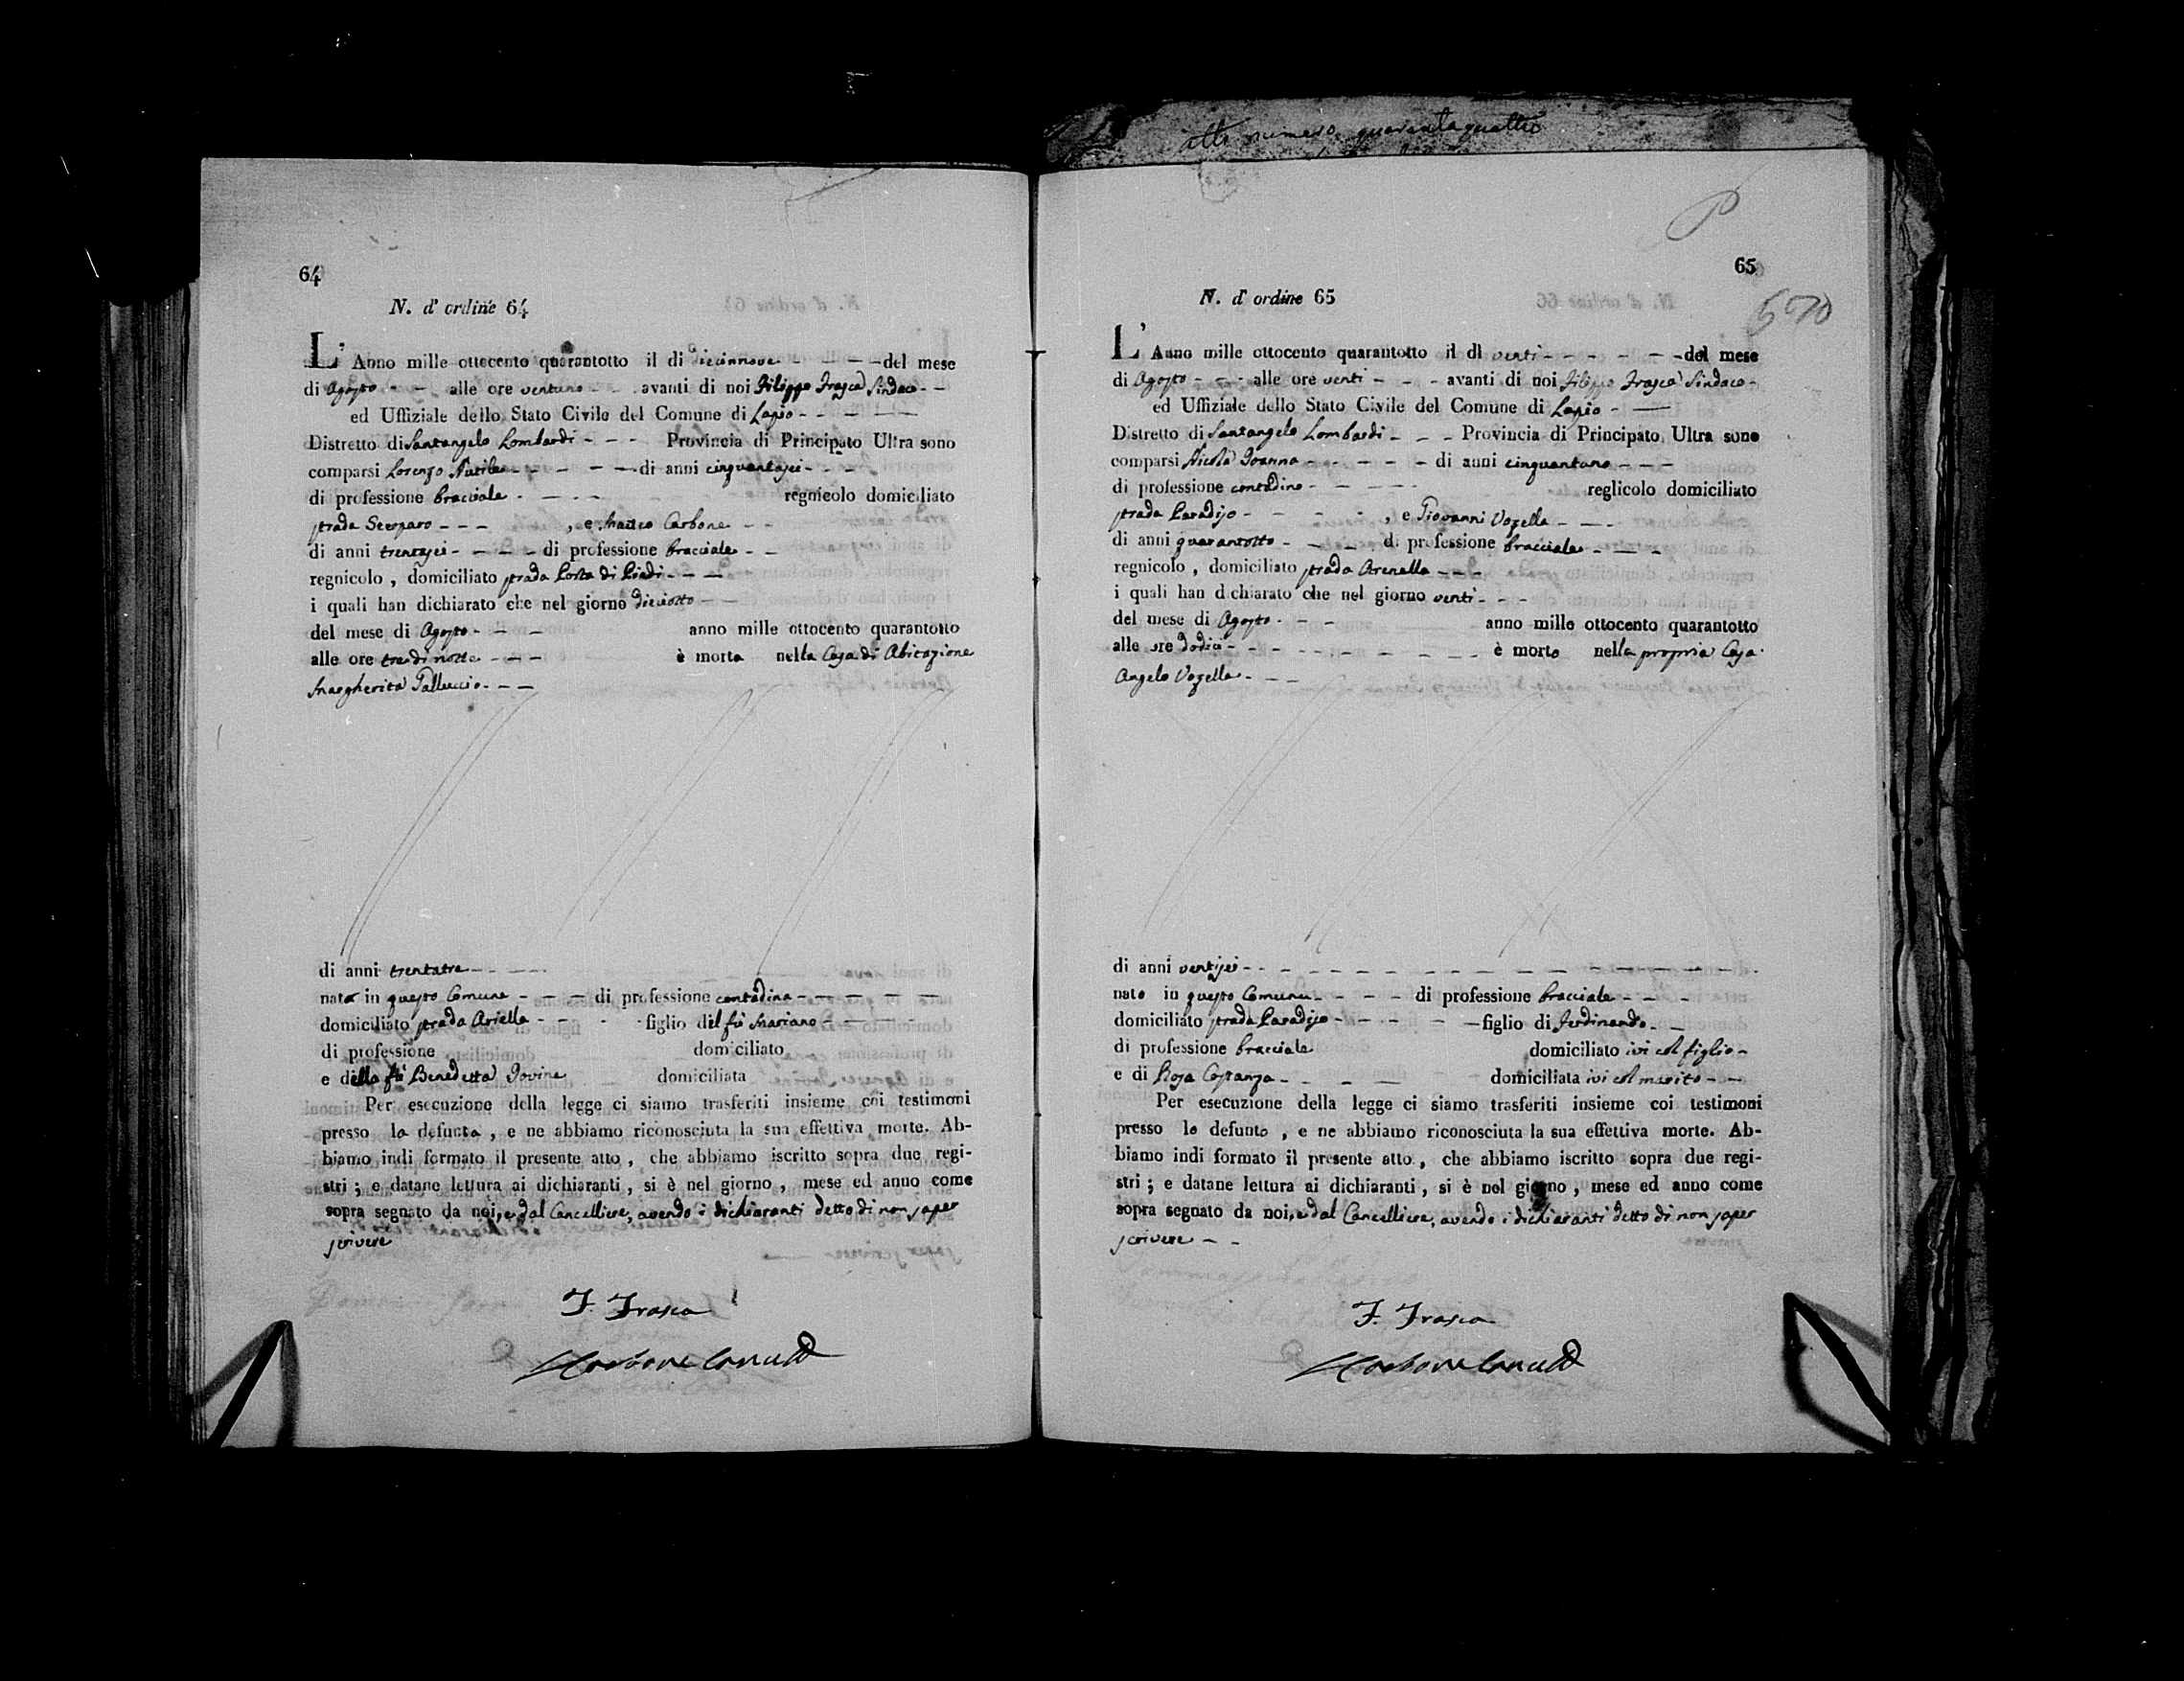 atto numero quarantaquattro
64
N. d' ordine 64
L' Anno mille ottocento quarantotto il dì diecinnove del mese
di Agosto alle ore ventuno avanti di noi Filippo Frasca Sindaco
ed Uffiziale dello Stato Civile del Comune di Lapio
Distretto di Santangelo Lombardi Provincia di Principato Ultra sono
comparsi Lorenzo Nutile di anni cinquantasei
di professione bracciale regnicolo domiciliato
strada Scorparo , e Matteo Carbone
di anni trentasei di professione bracciale
regnicolo , domiciliato strada Porta di Piedi
i quali han dichiarato che nel giorno dieciotto
del mese di Agosto anno mille ottocento quarantotto
alle ore tre di notte è morta nella Casa di Abitazione
Margherita Galluccio
di anni trentatre
nata in questo Comune di professione contadina
domiciliato strada Ariella figlio del fù Mariano
di professione domiciliato
e della fù Benedetta Iovine domiciliata
Per esecuzione della legge ci siamo trasferiti insieme coi testimoni
presso la defunta , e ne abbiamo riconosciuta la sua effettiva morte. Ab-
biamo indi formato il presente atto , che abbiamo iscritto sopra due regi-
stri ; e datane lettura ai dichiaranti , si è nel giorno , mese ed anno come
sopra segnato da noi, e dal Cancelliere, avendo i dichiaranti detto di non saper
scrivere
F. Frasca
Carbone Canc
P
65
570
N. d' ordine 65
L' Anno mille ottocento quarantotto il dì venti del mese
di Agosto alle ore venti avanti di noi Filippo Frasca Sindaco
ed Uffiziale dello Stato Civile del Comune di Lapio
Distretto di Santangelo Lombardi Provincia di Principato Ultra sono
comparsi Nicola Ioanna di anni cinquantuno
di professione contadino reglicolo domiciliato
strada Paradiso , e Giovanni Vozella
di anni quarantotto di professione bracciale
regnicolo , domiciliato strada Arenella
i quali han dichiarato che nel giorno venti
del mese di Agosto anno mille ottocento quarantotto
alle ore dodici è morto nella propria Casa
Angelo Vozella
di anni ventisei
nato in questo Comune di professione bracciale
domiciliato strada Paradiso figlio di Ferdinando
di professione bracciale domiciliato ivi col figlio
e di Rosa Costanza domiciliata ivi col marito
Per esecuzione della legge ci siamo trasferiti insieme coi testimoni
presso lo defunto , e ne abbiamo riconosciuta la sua effettiva morte. Ab-
biamo indi formato il presente atto , che abbiamo iscritto sopra due regi-
stri ; e datane lettura ai dichiaranti , si è nel giorno , mese ed anno come
sopra segnato da noi, e dal Cancelliere, avendo i dichiaranti detto di non saper
scrivere
F. Frasca
Carbone Canc